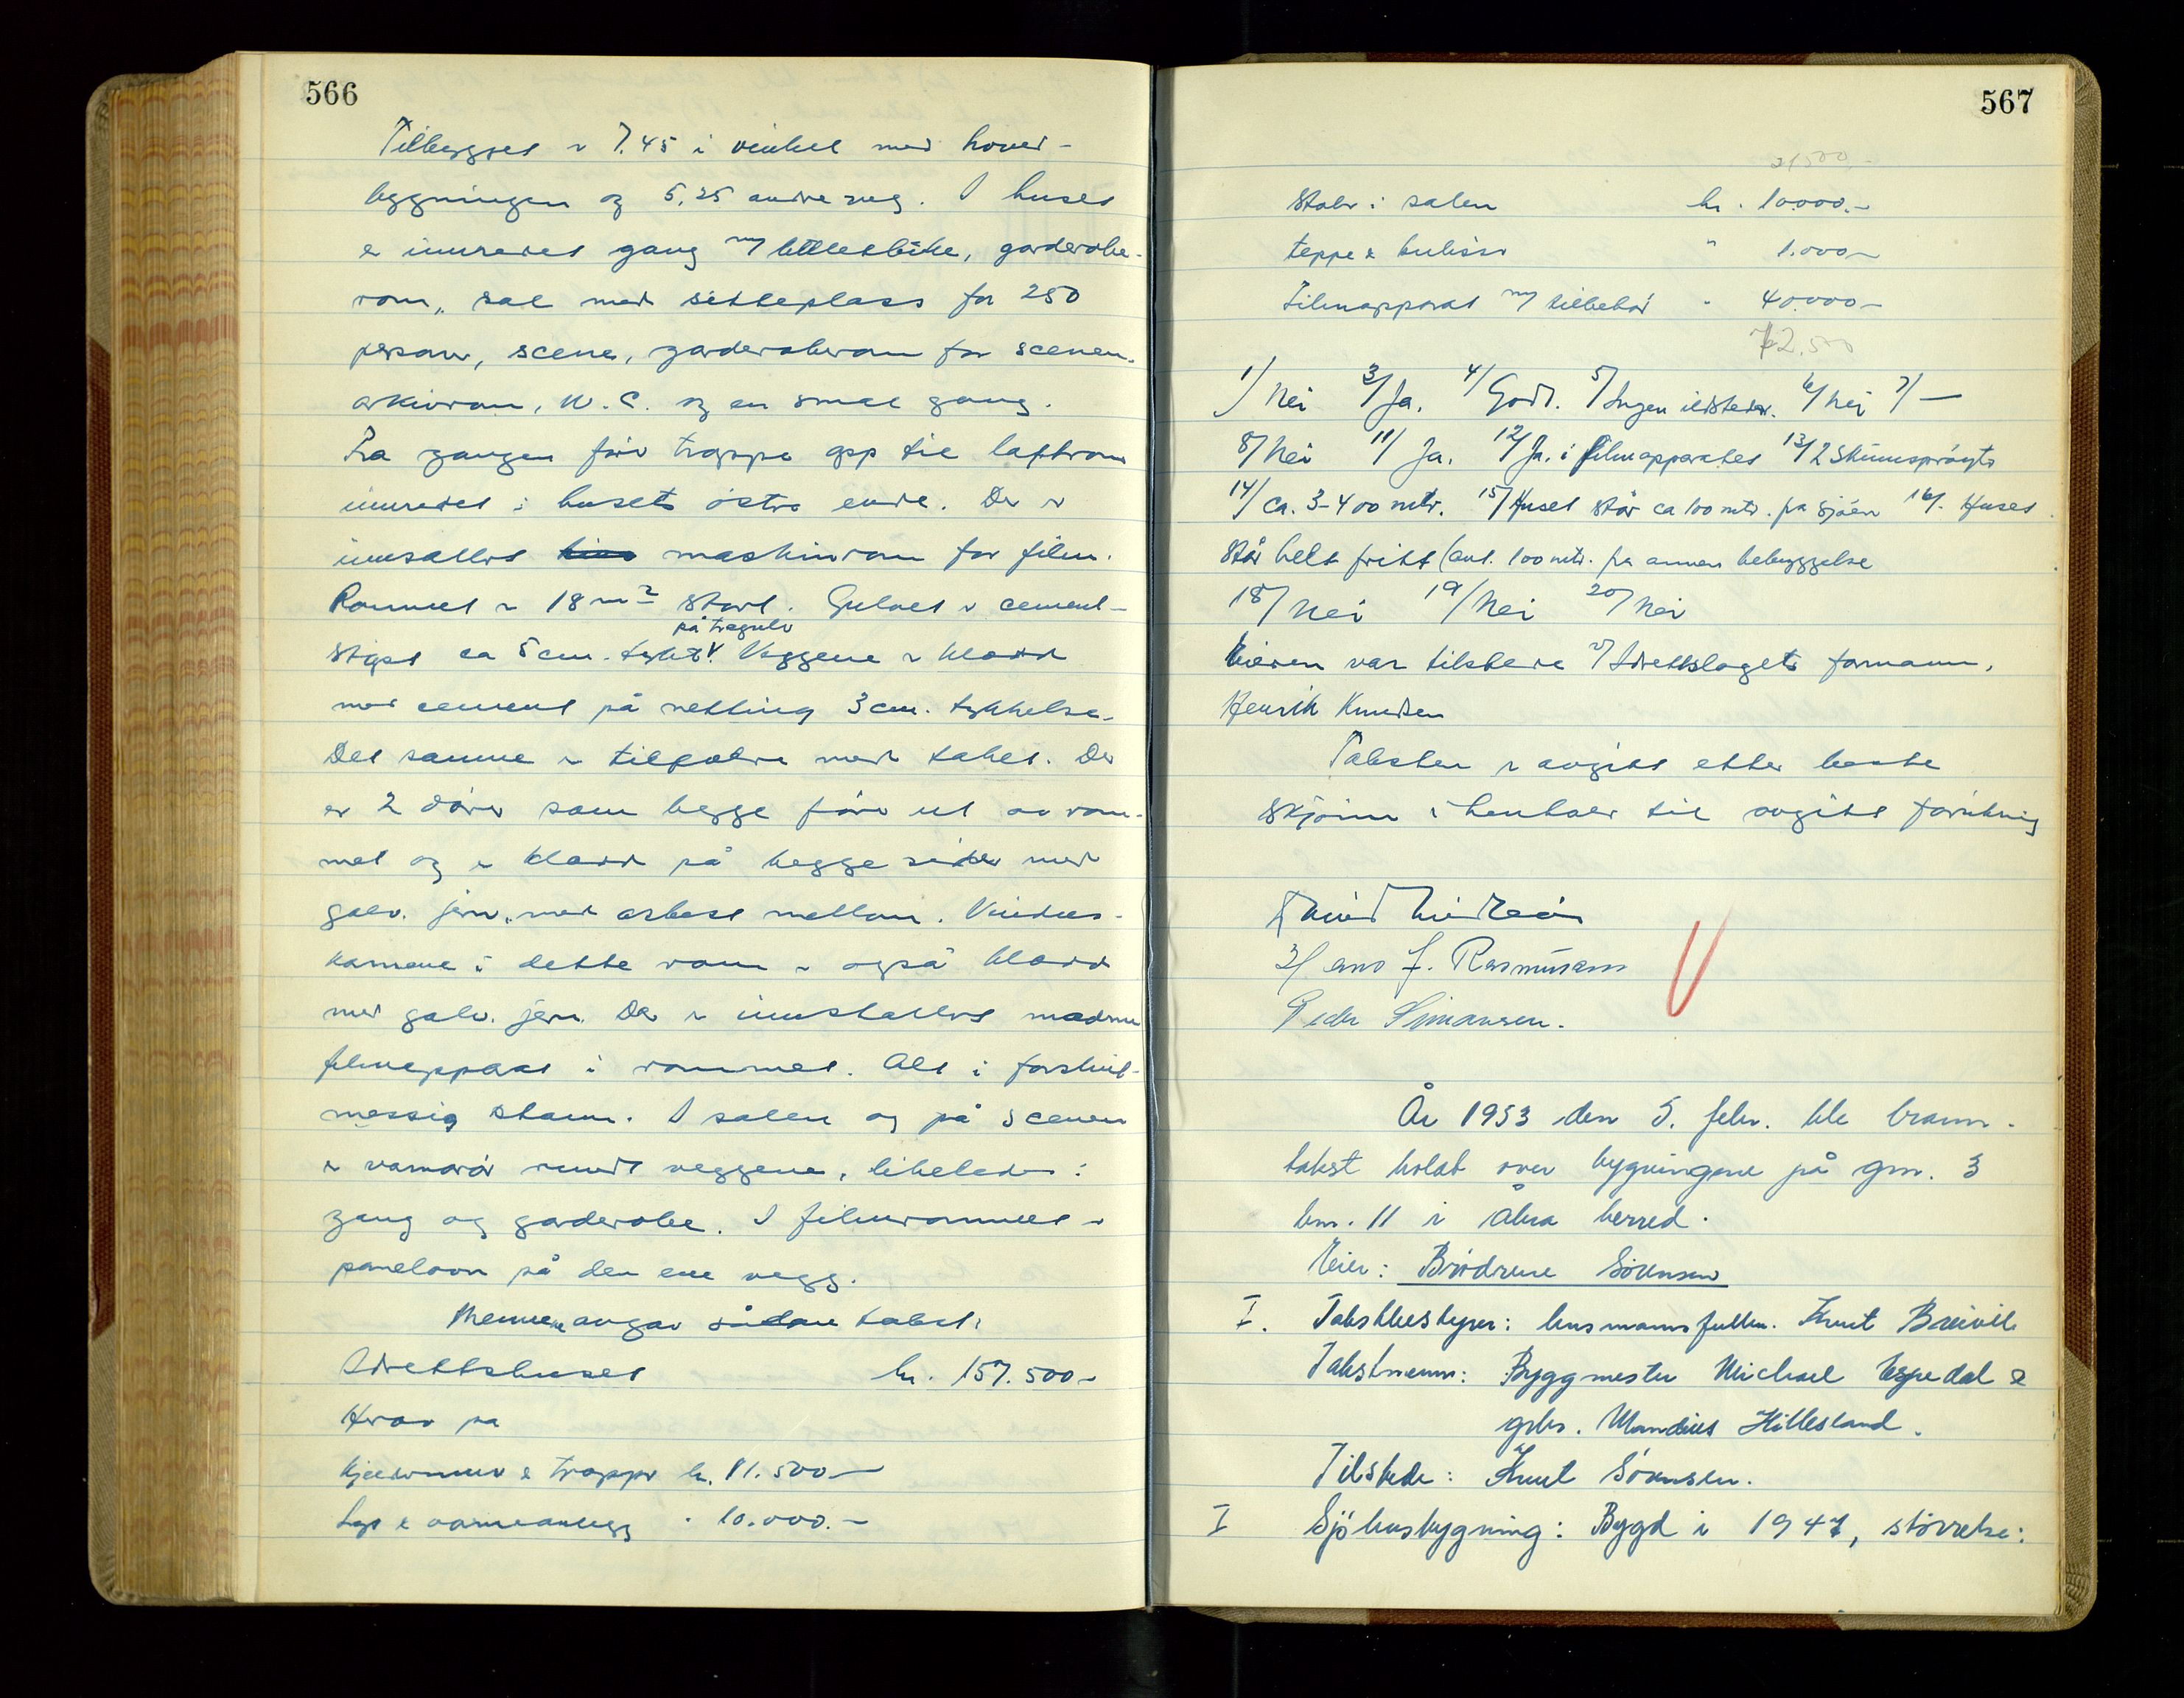 566
Tilbygget er 7.45 i vinkel med hoved-
byggningen og 5,25 andre veg. I huset
er innredet gang m/ billetluke, garderobe-
rom, sal med sitteplass for 250
personer, scene, garderoberom for scenen,
arkivrom, W.C. og en smal gang.
Fra gangen förer trappe opp til loftsrom
innredet i husets östre ende. Der er
innsatt maskinrom for film.
Rommet er 18 m² stort. Gulvet er cement-
på tregulv
støpt ca 5 cm. tykt V. Veggene er kledd
med cement på netting 3 cm. tykkelse.
Det samme er tilfelle med taket. Der
er 2 dører som begge förer ut av rom-
met og er kledd på begge sider med
galv. jern, med asbest mellom. Vindus-
karmene i dette rom er også kledd
med galv. jern. Der er innstallert moderne
filmapparat i rommet. Alt i forskrifts-
messig stann. I salen og på scenen
er varmerör rundt veggene, likeledes i
gang og garderobe. I filmrommet er
panelovn på den ene vegg.
Mennene avgav sådan takst:
Idrettshuset kr. 157.500-
Herav på
kjellermur & trapper kr. 11.500-
Lys & varmeanlegg " 10.000.-
567
21500,-
Stoler i salen kr. 10.000.-
teppe & kulisser " 1.000-
Filmapparat m/ tilbehör " 40.000-
72.500
1/ Nei 3/ Ja. 4/ Godt. 5/ Ingen ildsteder. 6/ Nei 7/ —
8/ Nei 11/ Ja. 12/ Ja. i filmapparatet 13/ 2 Skumspröyter
14/ ca. 3-400 mtr. 15/ Huset står ca 100 mtr. fra sjöen 16/. Huset
står helt fritt (ant. 100 mtr. fra annen bebyggelse
18/ Nei 19/ Nei 20/ Nei
Eieren var tilstede v/ Idrettslagets formann,
Henrik Knudsen
Taksten er avgitt etter beste
skjönn i henhold til avgitt forsikring
J. Rasmussen
Peder Simonsen.
År 1953 den 5. febr. ble brann-
takst holdt over bygningene på gnr. 3
bnr. 11 i Åkra herred.
Eier: Brödrene Sörensen
I. Takstbestyrer: lensmannsfullm. Knut Bauvik
Takstmenn: Byggmester Michael Espedal &
gbr. Mandius Hillesland.
Tilstede: Knut Sörensen.
I Sjöhusbygning: Bygd i 1947, störrelse: